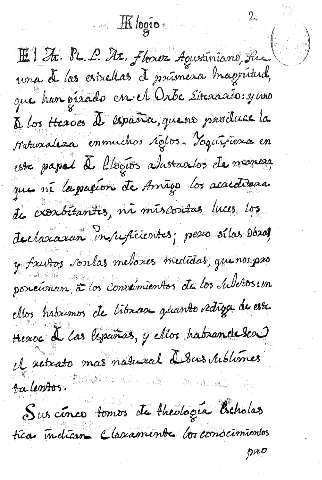 2
Elogio
El M. R. P. M. Florez Agustiniano, fue
una de las estrellas de primera magnitud,
que han girado en el Orbe Literario: y uno
de los Heroes de españa, que no produce la
Naturaleza en muchos siglos. Yo quisiera en
este papel de Elogios ajustarlos de manera
que ni la pasion de Amigo los acreditara
de exorbitantes, ni mis cortas luces los
declararan insuficientes; pero si las obras,
y frutos son las mejores medidas, que nos pro
porcionan, à los conocimientos de los Sujetos: en
ellos habremos de librar quanto se diga de este
Heroe de las Españas, y ellos habran de ser
el retrato mas natural de sus sublimes
talentos.
Sus cinco tomos de theologia Eschólas
tica indican claramente los conocimientos
pro